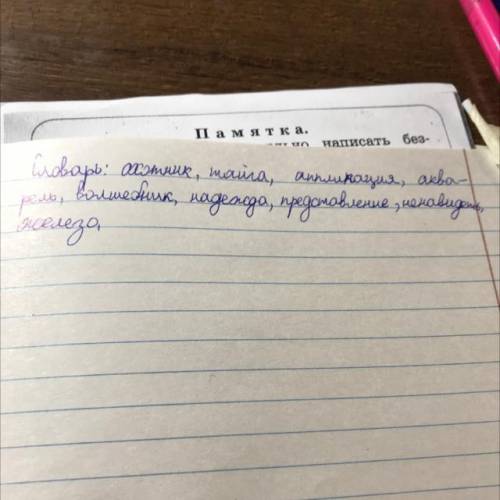 Памятка.
написать без-
Словарь: охотник, тайга, аппликация, аква-
рель, волшебник, надежда, представление, ненавидеть,
железо,